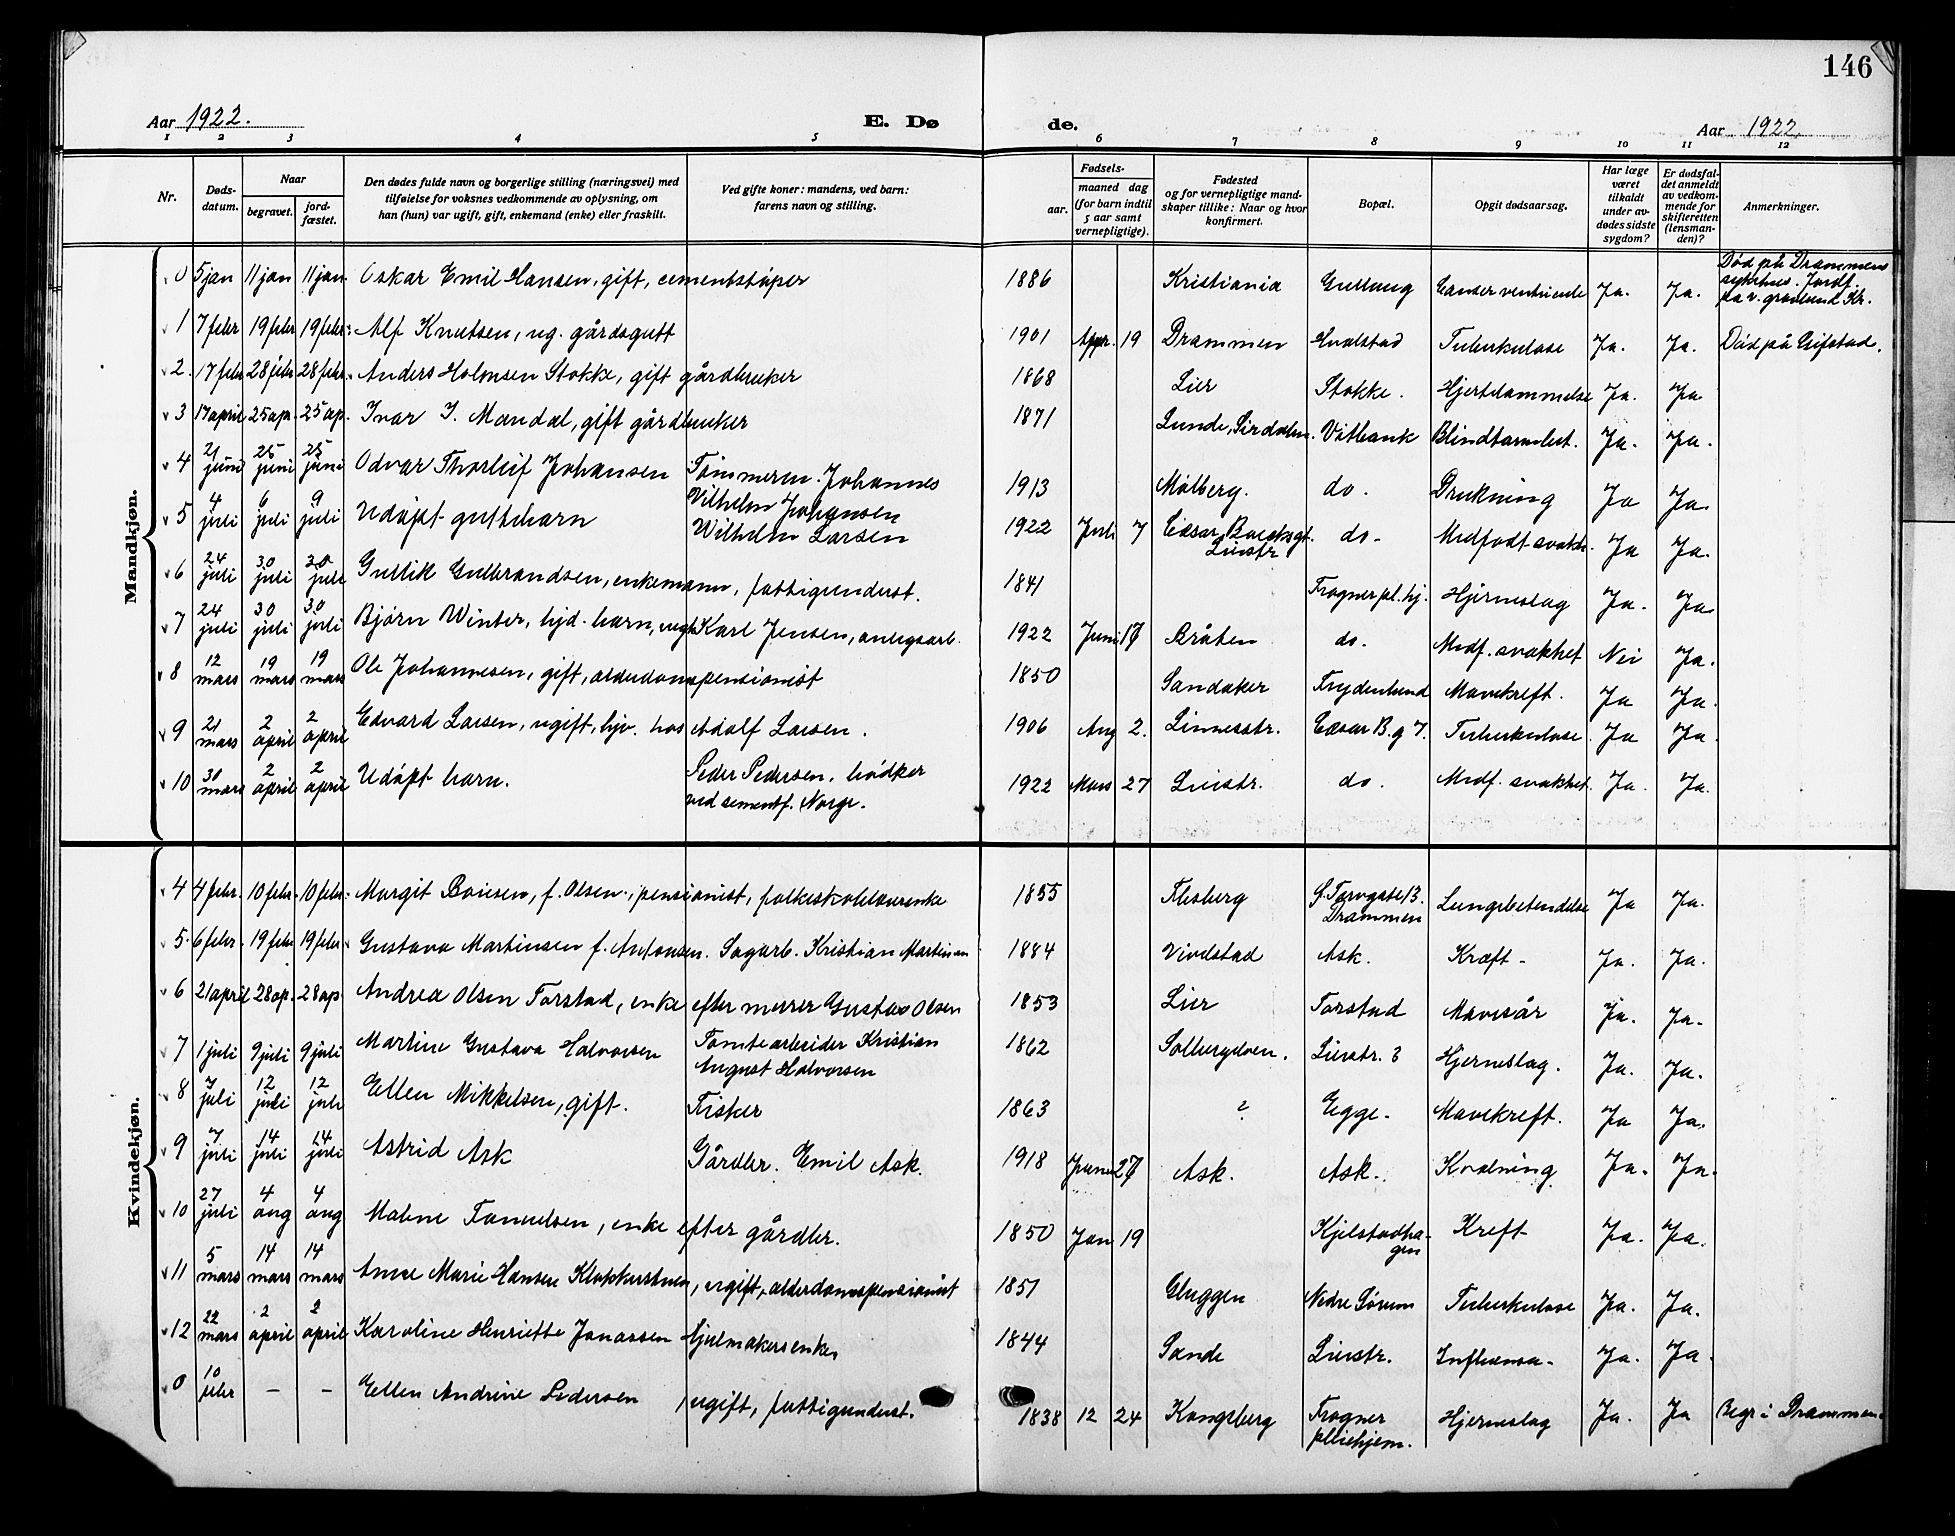 146
Aar 1922.
E. Dø
de.
Aar 1922.
1 2 3 4 5 6 7 8 9 10 11 12
Nr.
Døds-
datum.
Naar
begravet.
jord-
fæstet.
Den dødes fulde navn og borgerlige stilling (næringsvei) med
tilføielse for voksnes vedkommende av oplysning, om
han (hun) var ugift, gift, enkemand (enke) eller fraskilt.
Ved gifte koner: mandens, ved barn:
farens navn og stilling.
Fødsels-
aar.
maaned dag
(for barn indtil
5 aar samt
vernepligtige).
Fødested
og for vernepligtige mand-
skaper tillike: Naar og hvor
konfirmert.
Bopæl.
Opgit dødsaarsag.
Har læge
været
tilkaldt
under av-
dødes sidste
sygdom?
Er dødsfal-
det anmeldt
av vedkom-
mende for
skifteretten
(lensman-
den)?
Anmerkninger.
Mandkjøn.
0 5 jan 11 jan 11 jan. Oskar Emil Hansen, gift, cementstøper 1886 Kristiania Gullaug Cancer ventricule Ja. Ja. Død på Drammens
sykehus. Jordf.
pa v. gravlund Kr.
1 7 febr 19 febr 19 febr. Alf Knutsen, ug. gårdsgutt 1901 Apr. 19 Drammen Hvalstad Tuberkulose Ja. Ja. Død på Eifstad.
2. 17 febr 28 febr 28 febr. Anders Holmsen Stokke, gift gårdbruker 1868 Lier Stokke. Hjertelammelse Ja. Ja
3 17 april 25 ap. 25 ap. Ivar I. Mandal, gift gårdbruker 1871 Lunde, Sirdalen. Vitbank Blindtarmbet. Ja. Ja.
4 21 juni 25 juni 25 juni Odvar Thorleif Johansen Tømmerm. Johannes
Vilhelm Johansen 1913 Mølberg. do. Drukning Ja Ja.
5 4 juli 6 juli 9 juli Udøpt guttebarn Wilhelm Larsen 1922 Juli 7 Cæsar Boecksgt.
Lierstr do- Medfødt svakh. Ja Ja.
6 24 juli 30 juli 30 juli Gullik Gulbrandsen, enkemann, fattigunderst. 1841 Frogner pl. hj. Hjerneslag Ja. Ja.
7 24 juli 30 juli 30 juli Bjørn Winter, hjd. barn, Karl Jensen, anlegsarb. 1922 Juni 17 Bråten do. Medf. svakhet Nei Ja.
8 12 mars 19 mars 19 mars Ole Johannesen, gift, alderdomspensionist 1850 Sandaker Frydenlund Mavekreft. Ja Ja.
9 21 mars 2 april 2 april Edvard Larsen, ugift, hjv. hos Adolf Larsen. 1906 Aug 2. Linnesstr. Cæsar B. g 7. Tuberkulose. Ja Ja.
10 30 mars 2 april 2 april Udøpt barn. Peder Pedersen, bødker
ved sementf. Norge. 1922 Mars 27 Lierstr. do. Medf. svakhet. Ja. Ja.
Kvindekjøn.
4 4 febr. 10 febr. 10 febr. Margit Boiesen, f. Olsen, pensionist, folkeskolelærerenke 1855 Flesberg S. Torvgate 13.
Drammen Lungebetendelse Ja Ja.
5. 6 febr. 19 febr 19 febr. Gustava Martinsen f. Antonsen. Sagarb. Kristian Martinsen 1884 Vivelstad Ask. Kræft- Ja. Ja.
6 21 april 28 ap. 28 ap. Andrea Olsen Torstad, enke efter murer Gustav Olsen 1853 Lier Torstad Mavesår Ja. Ja.
7 1 juli 9 juli 9 juli Martine Gustava Halvorsen Tomtearbeider Kristian
August Halvorsen 1862 Solbergelven. Lierstr. 3 Hjerneslag. Ja. Ja.
8 7 juli 12 juli 12 juli Ellen Mikkelsen, gift. Fisker 1863 ? Egge. Mavekreft. Ja Ja.
9 7 juli 14 juli 14 juli Astrid Ask Gårdbr. Emil Ask. 1918 Juni 27 Ask. Ask. Kvælning Ja. Ja.
10 27 juli 4 aug 4 aug Malene enke efter gårdbr. 1850 Jan 19 Kjelstadha-
gen Kreft Ja. Ja.
11 5 mars 14 mars 14 mars Anne Marie Hansen Klokkerstuen, ugift, alderdomspensionist 1851 Gluggen Nedre Sørum Tuberkulose Ja. Ja.
12 22 mars 2 april 2 april Karoline Henriette Jonassen hjulmakersenke 1844 Sande Lierstr. Influensa- Ja. Ja.
0 10 febr - - Ellen Andrine Pedersen ugift, fattigunderst. 1838 12 24 Kongsberg Frogner
pleiehjem. Hjerneslag Ja. Ja Begr i Drammen.